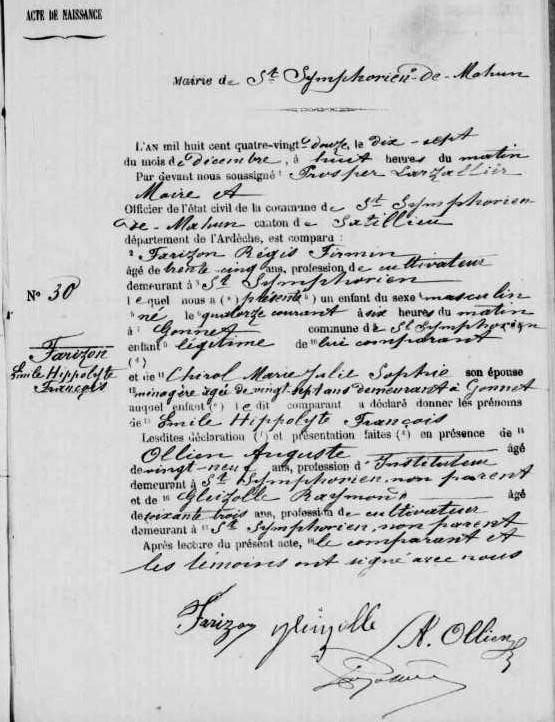 ACTE DE NAISSANCE
Mairie de St Symphorien-de-Mahun
L'AN mil huit cent quatre-vingt douze, le dix-sept
du mois de décembre, à huit heures du matin
Par devant nous soussigné Prosper Larzallier
Maire et
Officier de l'état civil de la commune de St Symphorien
de-Mahun canton de Satillieu
département de l'Ardèche, est comparu :
Farizon Régis Firmin
âgé de trente-cinq ans, profession de cultivateur
demeurant à St Symphorien
No 30
lequel nous a présenté un enfant du sexe masculin
né le quatorze courant à six heures du matin
à Gonnet commune de St Symphorien
Farizon
Emile Hippolyte
François
enfant légitime de lui comparant
et de Chirol Marie Julie Sophie son épouse
ménagère âgée de vingt-sept ans demeurant à Gonnet
auquel enfant le dit comparant a déclaré donner les prénoms
de Emile Hippolyte François
Lesdites déclaration et présentation faites en présence de
Ollien Auguste âgé
de vingt-neuf ans, profession d'Instituteur
demeurant à St Symphorien, non parent
et de Gleizolle Raymond âgé
de soixante trois ans, profession de cultivateur
demeurant à St Symphorien, non parent
Après lecture du présent acte, le comparant et
les témoins ont signé avec nous
Farizon gleizolle A. Ollien